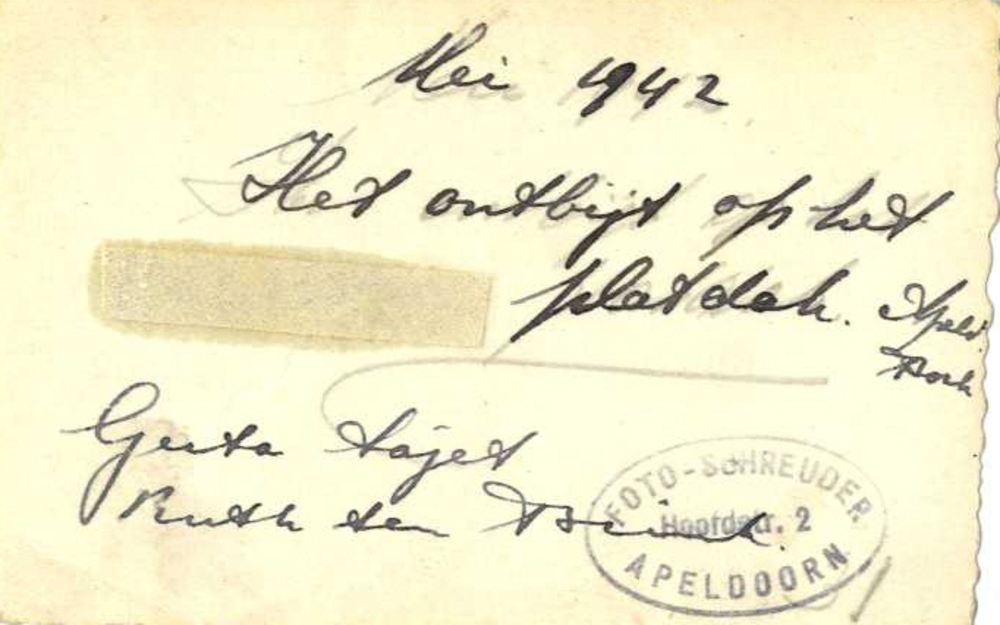 Mei 1942
Het ontbijt op het
platdak. Apeld.
Bosch
Gerta Tajet
Ruth ten Brink
FOTO-SCHREUDER
Hoofdstr. 2
APELDOORN